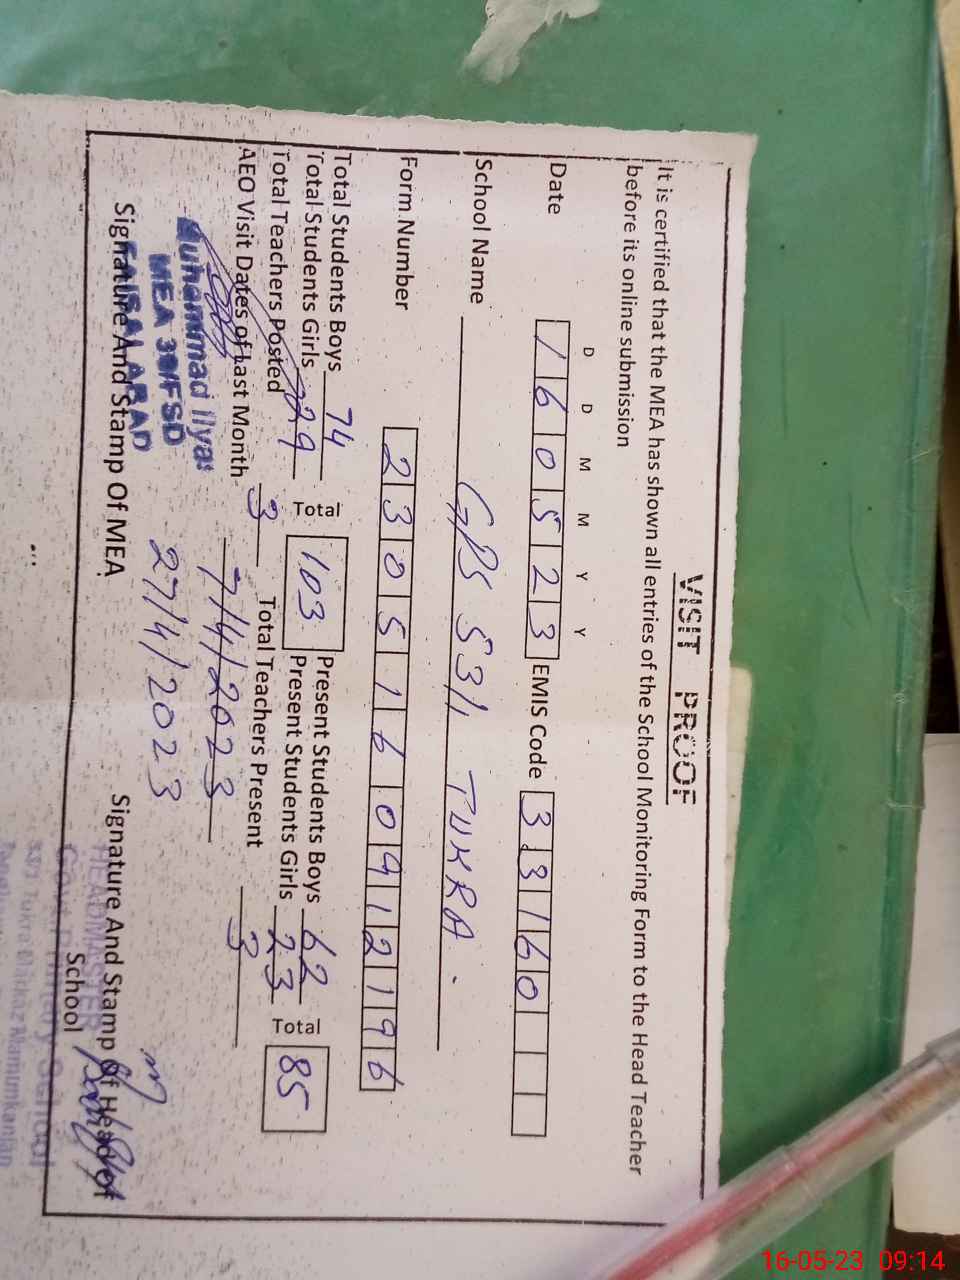 VISIT PROOF
It is certified that the MEA has shown all entries of the School Monitoring Form to the Head Teacher
before its online submission
D D M M Y Y
Date 160523 EMIS Code 33160
School Name GPS 531, TUKRA.
Form Number 2305160912196
Total Students Boys 74 Total 103 Present Students Boys 62 Total 85
Total Students Girls 29 Present Students Girls 23
Total Teachers Posted 3 Total Teachers Present 3
AEO Visit Dates of Last Month 7/4/2023
27/4/2023
Muhammad Ilyas
MEA 39/FSD
FAISALABAD
Signature And Stamp Of MEA
Signature And Stamp Of Head of
School
HEADMASTER
Govt. Primary School
531 Tukra Markaz Mamunkanjan
16-05-23 09:14